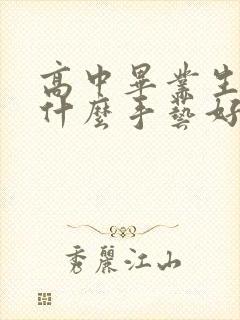 高中畢業生
什麼手藝好
秀麗江山